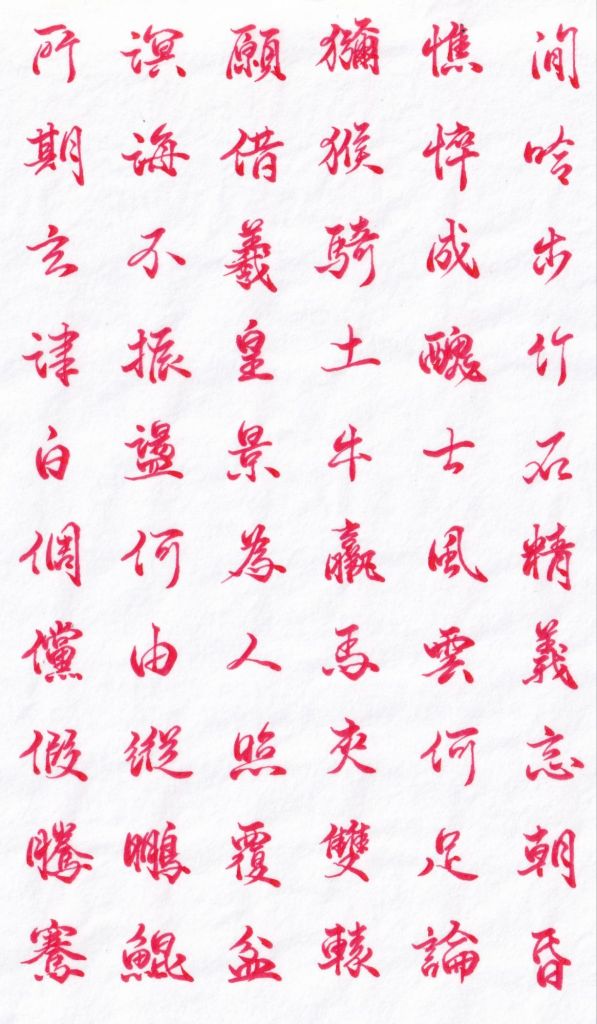 閒吟步竹石精義忘朝昏
憔悴成醜士風雲何足論
獼猴騎土牛羸馬夾雙轅
願借羲皇景為人照覆盆
溟海不振盪何由縱鵬鯤
所期玄津白倜儻假騰騫